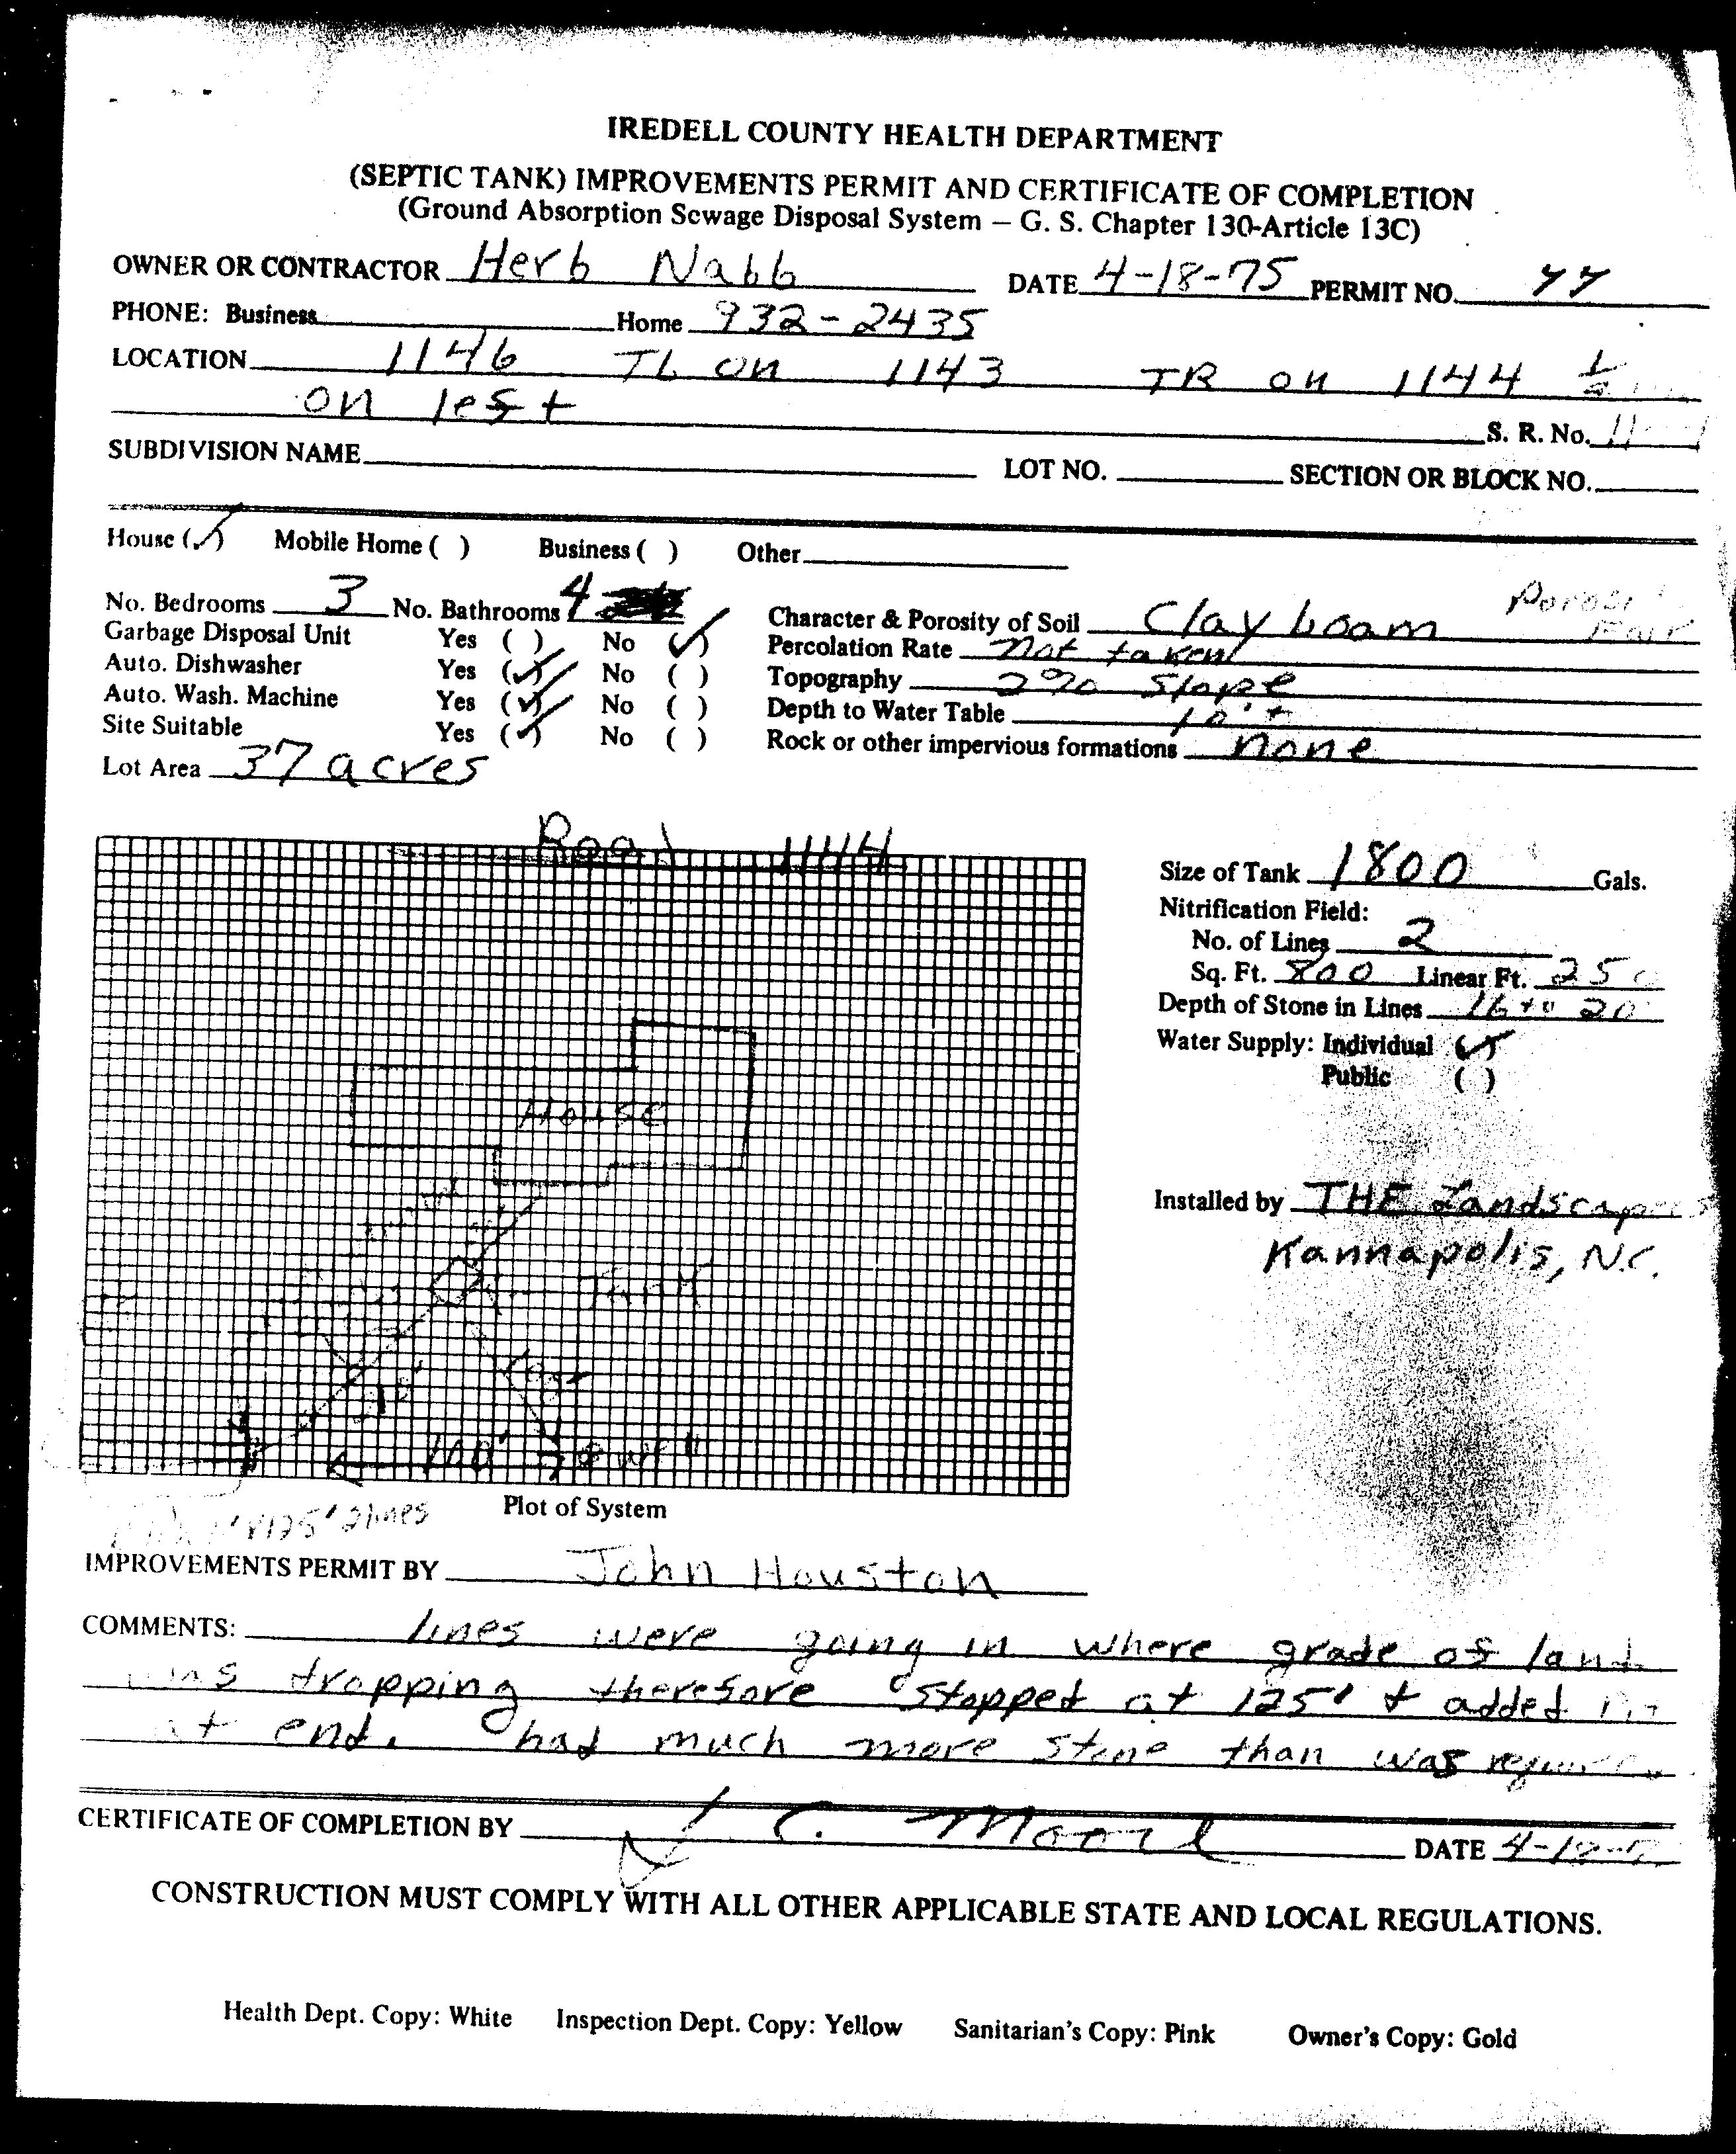 IREDELL COUNTY HEALTH DEPARTMENT
(SEPTIC TANK) IMPROVEMENTS PERMIT AND CERTIFICATE OF COMPLETION
(Ground Absorption Sewage Disposal System – G. S. Chapter 130-Article 13C)
OWNER OR CONTRACTOR Herb Nabb DATE 4-18-75 PERMIT NO.
PHONE: Business Home 932-2435
LOCATION 1146 TL on 1143 TR on 1144 1/2
on left
S. R. No.
SUBDIVISION NAME LOT NO. SECTION OR BLOCK NO.
House (✓) Mobile Home ( ) Business ( ) Other
No. Bedrooms 3 No. Bathrooms 4 Character & Porosity of Soil Clay Loam Fair
Garbage Disposal Unit Yes ( ) No (✓) Percolation Rate not taken
Auto. Dishwasher Yes (✓) No ( ) Topography 2% slope
Auto. Wash. Machine Yes (✓) No ( ) Depth to Water Table 10'+
Site Suitable Yes (✓) No ( ) Rock or other impervious formations none
Lot Area 37 acres
Road 1144
Size of Tank 1800 Gals.
Nitrification Field:
No. of Lines 2
Sq. Ft. 800 Linear Ft. 250
Depth of Stone in Lines 16 to 20
Water Supply: Individual (✓)
Public ( )
House
Installed by THE Landscapers
Kannapolis, N.C.
Tank
100'
Plot of System
lines
IMPROVEMENTS PERMIT BY John Houston
COMMENTS: lines were going in where grade of land
was dropping therefore stopped at 125' + added
at end. had much more stone than was
CERTIFICATE OF COMPLETION BY C. Moore DATE
CONSTRUCTION MUST COMPLY WITH ALL OTHER APPLICABLE STATE AND LOCAL REGULATIONS.
Health Dept. Copy: White Inspection Dept. Copy: Yellow Sanitarian's Copy: Pink Owner's Copy: Gold